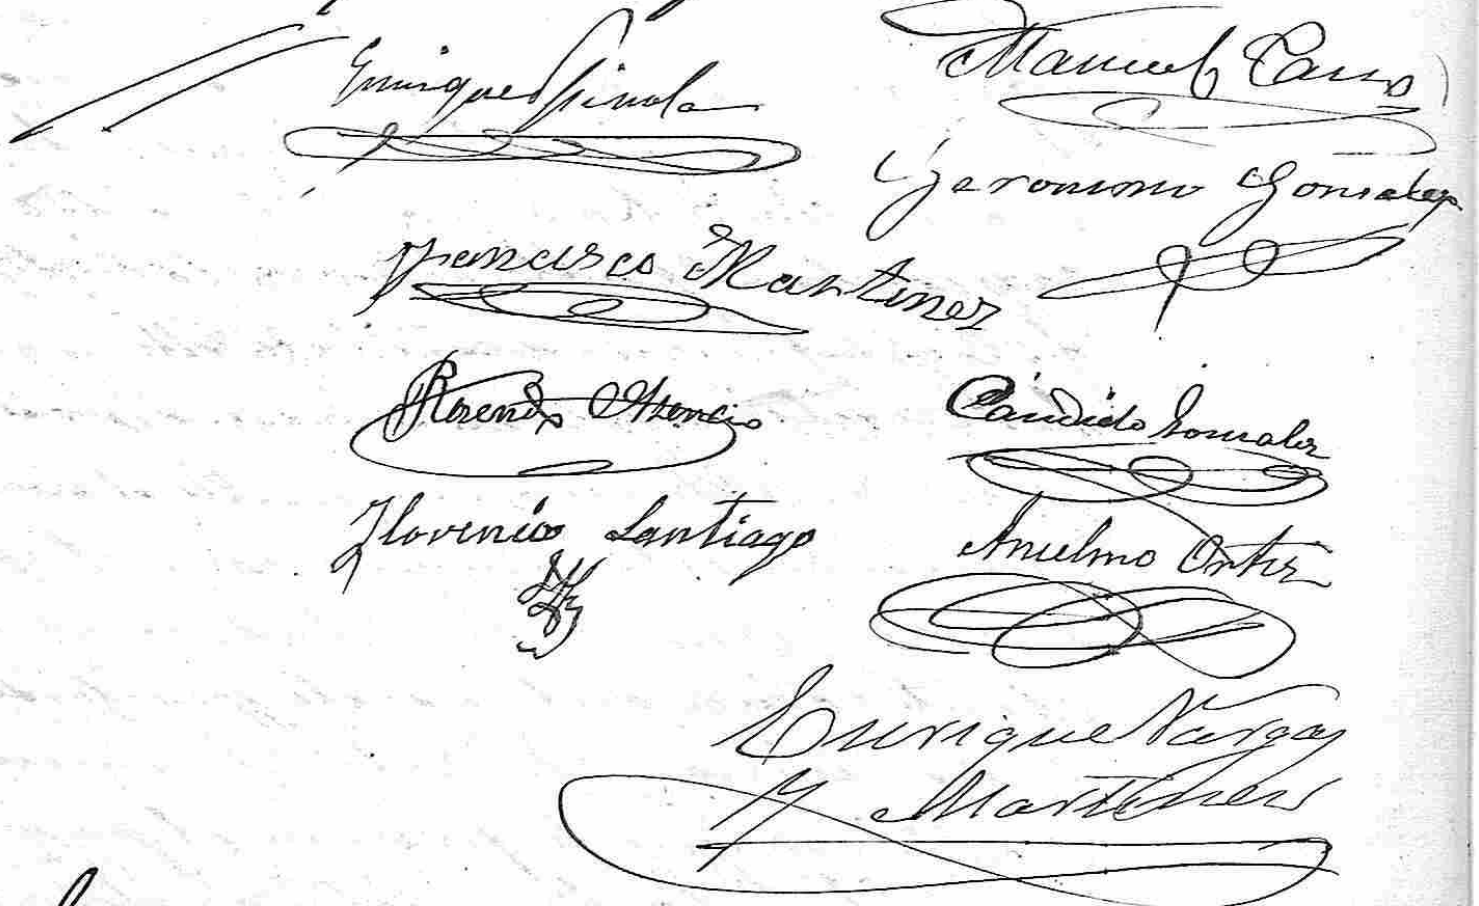 Enrique Spinola
Manuel
Geronimo Gonzalez
Francisco Martinez
Rosendo Atencio
Candido Gonzalez
Florencio Santiago
Anselmo Ortiz
Enrique Vargas
y Martinez